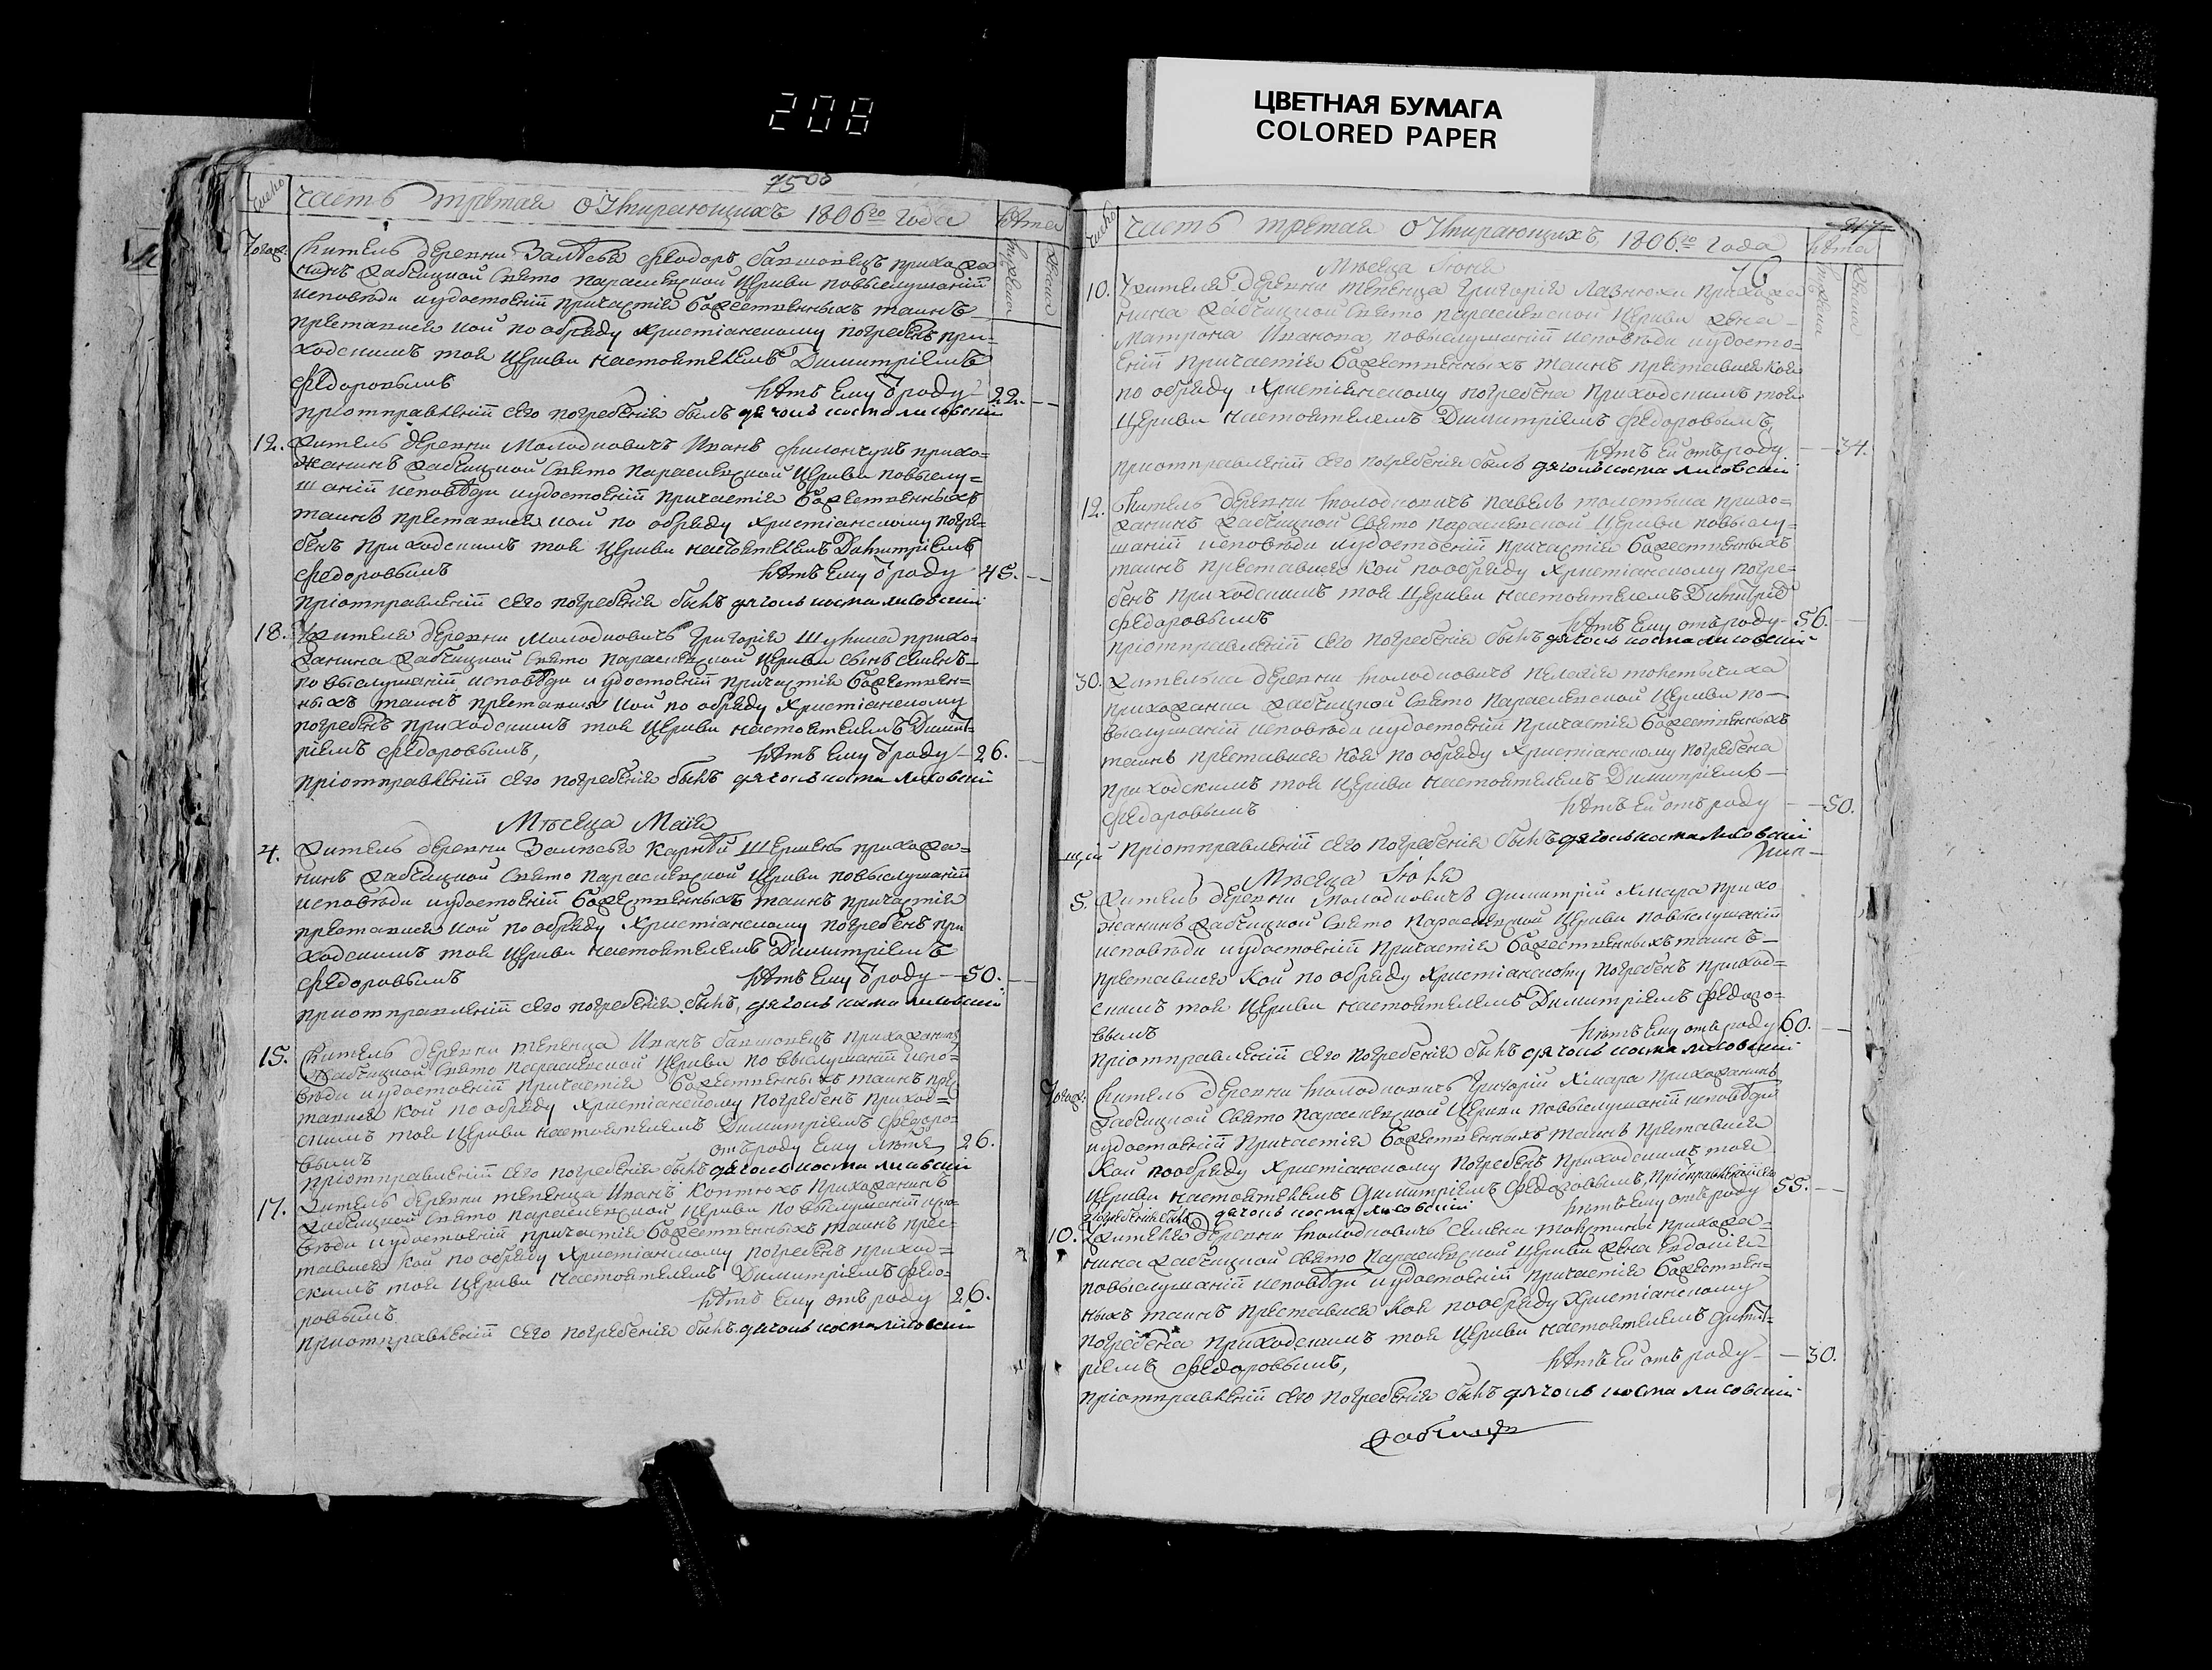 208
ЦВЕТНАЯ БУМАГА
COLORED PAPER
75об
число
часть третая о Умирающихъ 1806го Года
лѣта
мужеска
женска
Тогож.
Житель деревни Залѣсья Феодоръ бакшонецъ прихожа
нинъ Жабчицкой Свято Параскевской Церкви повыслушаніи
исповѣди иудостоеніи причастія божественныхъ таинъ
преставися кой по обряду Христіанскому погребенъ при-
ходскимъ тоя Церкви настоятелемъ Димитріемъ
Федоровымъ лѣтъ Ему Ѿроду 22.
приотправленіи сего погребенія былъ дячокъ косма лисовскій
12. Житель деревни Молодковичъ Иванъ прихо=
жанинъ Жабчицкой Свято Параскевской Церкви повыслу=
шаніи исповѣди иудостоеніи Причастія Божественныхъ
таинъ преставися кой по обряду Христіанскому погре=
бенъ приходскимъ тоя Церкви настоятелемъ Димитріемъ
Федоровымъ лѣтъ Ему Ѿроду 45.
приотправленіи сего погребенія былъ дячокъ косма лисовскій
18. Жителя деревни Молодковичъ Григорія прихо=
жанина Жабчицкой Свято Параскевской Церкви сынъ Семенъ
по выслушаніи исповѣди иудостоеніи Причастія Божествен=
ныхъ таинъ преставися кой по обряду Христіанскому
погребенъ приходскимъ тоя Церкви настоятелемъ Димит=
ріемъ Федоровымъ, лѣтъ Ему Ѿроду 26.
приотправленіи сего погребенія былъ дячокъ косма лисовскій
Мѣсеца Маія
4. Житель деревни Залѣсья Карпѣй прихожа=
нинъ Жабчицкой Свято Параскевской Церкви повыслушаніи
исповѣди иудостоеніи Божественныхъ таинъ причастія
преставися кой по обряду Христіанскому погребенъ при
ходскимъ тоя Церкви настоятелемъ Димитріемъ
Федоровымъ лѣтъ Ему Ѿроду 50.
приотправленіи сего погребенія былъ, дячокъ косма лисовскій
15. Житель деревни тепенца Иванъ бакшонецъ Прихожанинъ
Жабчицкой Свято Параскевской Церкви по выслушаніи испо=
вѣди иудостоеніи Причастія Божественныхъ таинъ пре
тавися кой по обряду Христіанскому Погребенъ приход=
скимъ тоя Церкви настоятелемъ Димитріемъ Федоро=
вымъ отъ роду Ему лѣта 26.
приотправленіи сего погребенія былъ дячокъ косма лисовскій
17. Житель деревни тепенца Иванъ Коптюхъ Прихожанинъ
Жабчицкой Свято Параскевской Церкви по выслушаніи испо=
вѣди иудостоеніи причастія Божественныхъ таинъ прес=
тавися кой по обряду Христіанскому погребенъ приход=
скимъ тоя Церкви настоятелемъ Димитріемъ Федо=
ровымъ лѣтъ Ему отъ роду 26.
приотправленіи сего погребенія былъ дячокъ косма лисовскій
число
часть третая о Умирающихъ 1806го Года
лѣта
76
мужеска
женска
Мѣсеца Іюня
10. Жителя Деревни тепенца Григорія Лазнюхи Прихожа
нина Жабчицкой Свято Параскевской Церкви жена
Матрона Иванова, повыслушаніи исповѣди иудосто=
еніи Причастія Божественныхъ таинъ преставися коя
по обряду Христіанскому погребена Приходскимъ тоя
Церкви настоятелемъ Димитріемъ Федоровымъ
лѣтъ Ей отъ роду 34.
приотправленіи сего погребенія былъ дячокъ косма лисовскій
12. Житель деревни молодковичъ Павелъ прихо=
жанинъ Жабчицкой Свято Параскевской Церкви повыслу=
шаніи исповѣди иудостоеніи причастія Божественныхъ
таинъ преставися кой пообряду Христіанскому погре=
бенъ приходскимъ тоя Церкви настоятелемъ Димитріе
Федоровымъ лѣтъ Ему отъ роду 56.
приотправленіи сего погребенія былъ дячокъ косма лисовскій
30. Жителька деревни молодковичъ Пелагія
прихожанка Жабчицкой Свято Параскевской Церкви по
выслушаніи исповѣди иудостоеніи Причастія Божественныхъ
таинъ преставися коя по обряду Христіанскому Погребена
приходскимъ тоя Церкви настоятелемъ Димитріемъ
Федоровымъ лѣтъ Ей отъ роду 50.
приотправленіи сего погребенія былъ дячокъ косма лисовскій
Мѣсеца Іюля
5. Житель деревни молодковичъ Димитрій Хмара прихо
жанинъ Жабчицкой Свято Параскевской Церкви повыслушаніи
исповѣди иудостоеніи Причастія Божественныхъ таинъ
преставися кой по обряду Христіанскому погребенъ приход=
скимъ тоя Церкви настоятелемъ Димитріемъ Федоро=
вымъ лѣтъ Ему отъ роду 60.
приотправленіи сего погребенія былъ дячокъ косма лисовскій
Тогож. Житель деревни молодковичъ Григорій Хмара прихожанинъ
Жабчицкой Свято Параскевской Церкви повыслушаніи исповѣди
иудостоеніи Причастія Божественныхъ таинъ преставися
кой пообряду Христіанскому погребенъ Приходскимъ тоя
Церкви настоятелемъ Димитріемъ Федоровымъ, приотправленіи сего
погребенія былъ дячокъ косма лисовскій лѣтъ Ему отъ роду 55.
10. Жителя деревни молодковичъ Семена прихожа=
нина Жабчицкой Свято Параскевской Церкви жена Евдокія
повыслушаніи исповѣди иудостоеніи причастія Божествен=
ныхъ таинъ преставися коя пообряду Христіанскому
погребена приходскимъ тоя Церкви настоятелемъ Димит=
ріемъ Федоровымъ, лѣтъ Ей отъ роду 30.
приотправленіи сего погребенія былъ дячокъ косма лисовскій